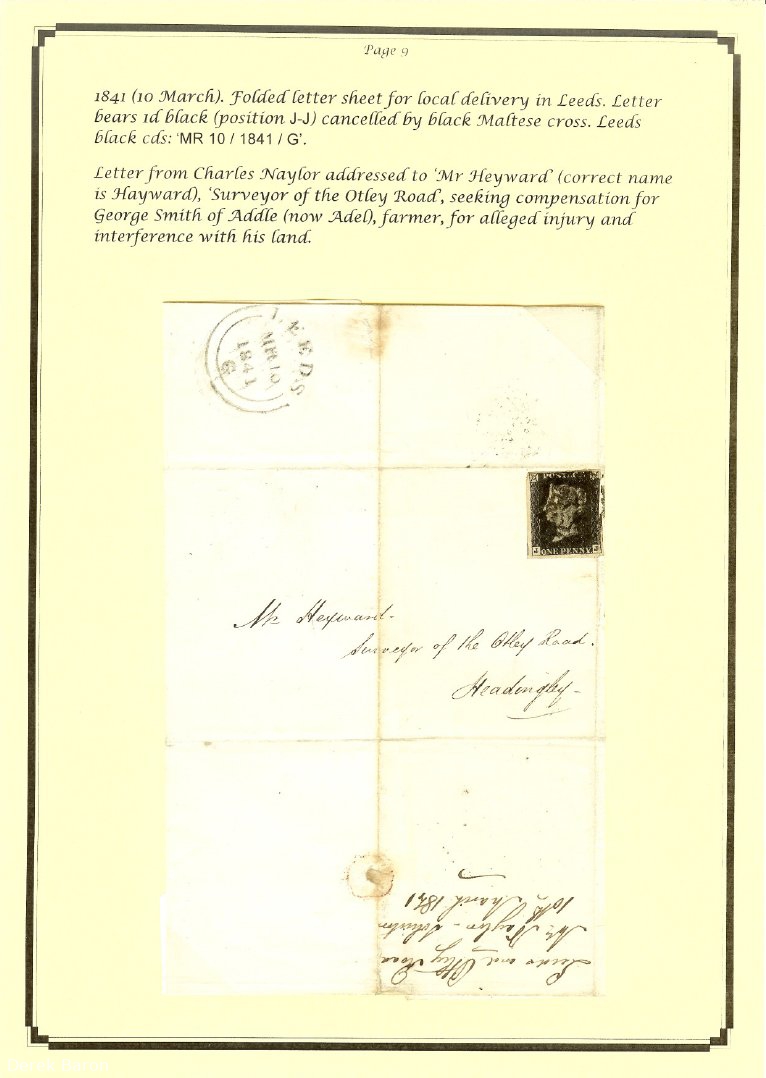 Page 9
1841 (10 March). Folded letter sheet for local delivery in Leeds. Letter
bears 1d black (position J-J) cancelled by black Maltese cross. Leeds
black cds: ‘MR 10 / 1841 / G’.
Letter from Charles Naylor addressed to ‘Mr Heyward’ (correct name
is Hayward), ‘Surveyor of the Otley Road’, seeking compensation for
George Smith of Addle (now Adel), farmer, for alleged injury and
interference with his land.
LEEDS
MR 10
1841
G
POSTAGE
J ONE PENNY J
Mr Heyward.
Surveyor of the Otley Road.
Headingley
Leeds and Otley Road
Mr Naylor - Solicitor
10th March 1841